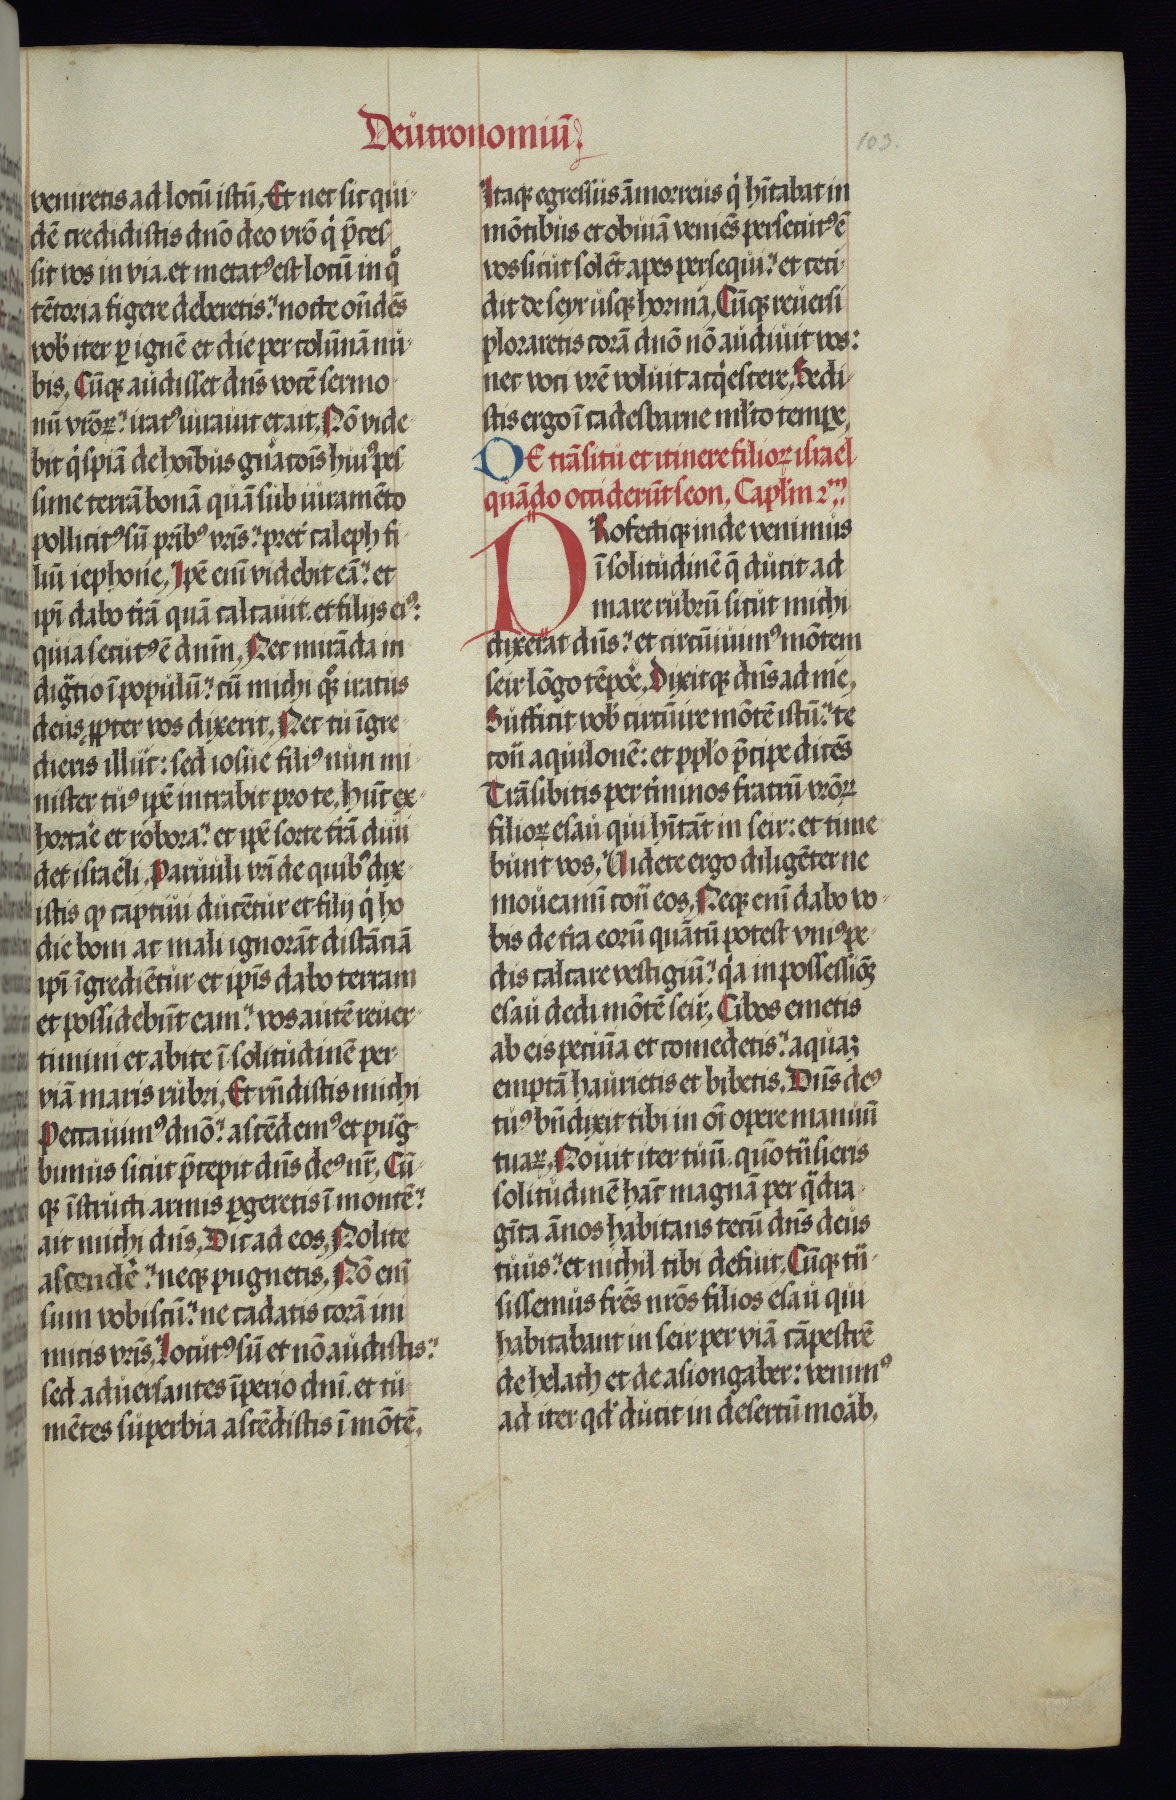 Deutronomiū
103.
veniretis ad locū istū. Et nec sic qui
dē credidistis dnō deo vrō qͥ p̄ces
sit vos in via. et metatꝰ est locū in qͦ
tētoria figere deberetis: nocte ondēs
vob̓ iter ꝑ ignē et die per colūnā nu
bis, Cūqꝫ audisset dn̄s vocē sermo
nū vrōꝝ: iratꝰ iurauit et ait, Nō vide
bit qͥspiā de hoībus gnͣacoīs huiꝰ pes
sime terrā bonā quā sub iuramēto
pollicitꝰ sū prībꝰ vrīs: pret̓ caleph fi
liū iephone, Ipē enī videbit eā: et
ipī dabo trā quā calcauit. et filijs eiꝰ:
quia secutꝰ ē dnm̄, Nec mirāda in
digͣtio ī populū: cū michi qͦꝫ iratus
deus ꝓpter vos dixerit, Nec tu īgre
dieris illuc: sed iosue filiꝰ nun mi
nister tuꝰ ipē intrabit pro te, hūc ex
hortar̄e et robora: et ipē sorte trā diui
det israeli, Paruuli vrī de quibꝰ dix
istis ꝙ captiui ducētur et filij qͥ ho
die boni ac mali ignorāt distāciā
ipī īgrediētur et ipīs dabo terram
et possidebūt eam: vos autē reuer
timini et abite ī solitudinē per
viā maris rubri, Et rn̄distis michi
Peccauimꝰ dnō: ascēdemꝰ et pug
bimus sicut p̄cepit dn̄s deꝰ nr̄, Cū
qꝫ īstructi armis ꝑgeretis ī montē:
ait michi dn̄s, Dic ad eos, Nolite
ascendē: neqꝫ pugnetis, Nō enī
sum vobiscū: ne cadatis corā ini
micis vrīs, Locutꝰ sū et nō audistis:
sed aduersantes īperio dnī. et tu
mētes superbia ascēdistis ī mōtē,
Itaqꝫ egressus āmorreus qͥ hītabat in
mōtibus et obuiā veniēs persecutꝰ ē
vos sicut solēt apes persequi: et ceci
dit de seyr usqꝫ horma, Cūqꝫ reuersi
ploraretis corā dnō nō audiuit vos:
nec voci vrē voluit acqͥescere, Sedi
stis ergo ī cadesbarne ml̓to tempe,
DE trāsitu et itinere filioꝝ israel
quādo occiderūt seon, Capl̓m 2m
PRofectiqꝫ inde venimus
ī solitudinē q̄ ducit ad
mare rubrū sicut michi
dixerat dn̄s: et circūiuimꝰ mōtem
seir lōgo tēpoͤe, Dixitqꝫ dn̄s ad me,
Sufficit vob̓ circūire mōtē istū: te
cōn̄ aquilonē: et ppl̓o p̄cipe dicēs
Trāsibitis per t̓minos fratrū vrōꝝ
filioꝝ esau qui hītāt in seir: et time
bunt vos, Uidete ergo diligēter ne
moueamī cōn̄ eos, Neqꝫ enī dabo vo
bis de tra eorū quātū potest vniꝰ pe
dis calcare vestigiū: qͥa in possessiōꝫ
esau dedi mōtē seir, Cibos emetis
ab eis pecun̄a et comedetis: aquaꝫ
emptā haurietis et bibetis, Dn̄s deꝰ
tuꝰ bn̄dixit tibi in oī opere manuū
tuaꝝ, Nouit iter tuū. quōͦ tͣnsieris
solitudinē hāc magnā per qͣdra
gīta ānos habitans tecū dn̄s deus
tuus: et nichil tibi defuit, Cūqꝫ tͣn
sissemus frēs nrōs filios esau qui
habitabant in seir per viā cāpestrē
de helath et de asiongaber: venimꝰ
ad iter qd̓ ducit in desertū moab,